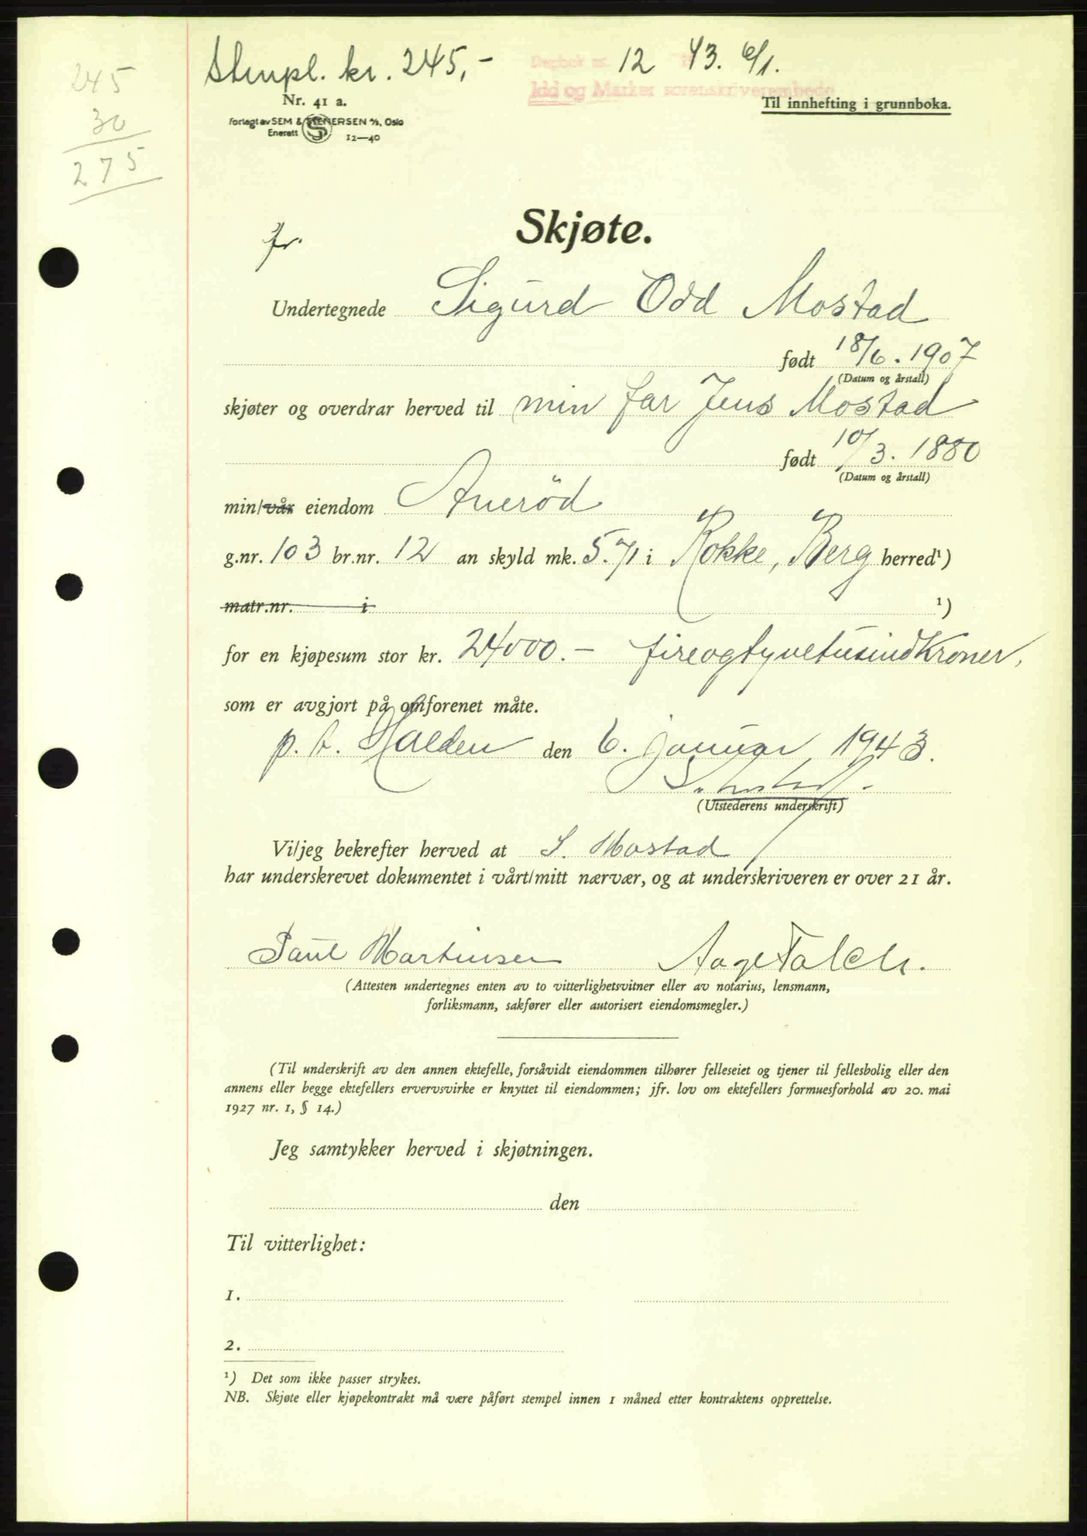 245
30
275
Stempl. kr. 245,-
Dagbok nr. 12 43. 6/1.
Idd og Marker sorenskriverembede
Nr. 41 a.
Til innhefting i grunnboka.
Forlagt av SEM & STENERSEN A/S, Oslo
Enerett 12—40
Skjøte.
fr.
Undertegnede Sigurd Odd Mostad
født 18/6. 1907
(Datum og årstall)
skjøter og overdrar herved til min far Jens Mostad
født 10/3. 1880
(Datum og årstall)
min/vår eiendom Anerød
g.nr. 103 br.nr. 12 an skyld mk. 5.71 i Rokke, Berg herred¹)
matr.nr. i ¹)
for en kjøpesum stor kr. 24000.- fireogtyvetusindkroner,
som er avgjort på omforenet måte.
p. t. Halden den 6. januar 1943.
S. Mostad.
(Utstederens underskrift)
Vi/jeg bekrefter herved at S. Mostad
har underskrevet dokumentet i vårt/mitt nærvær, og at underskriveren er over 21 år.
Paul Martinsen Aage Falch.
(Attesten undertegnes enten av to vitterlighetsvitner eller av notarius, lensmann,
forliksmann, sakfører eller autorisert eiendomsmegler.)
(Til underskrift av den annen ektefelle, forsåvidt eiendommen tilhører felleseiet og tjener til fellesbolig eller den
annens eller begge ektefellers ervervsvirke er knyttet til eiendommen; jfr. lov om ektefellers formuesforhold av 20. mai
1927 nr. 1, § 14.)
Jeg samtykker herved i skjøtningen.
den
Til vitterlighet:
1.
2.
¹) Det som ikke passer strykes.
NB. Skjøte eller kjøpekontrakt må være påført stempel innen 1 måned etter kontraktens opprettelse.